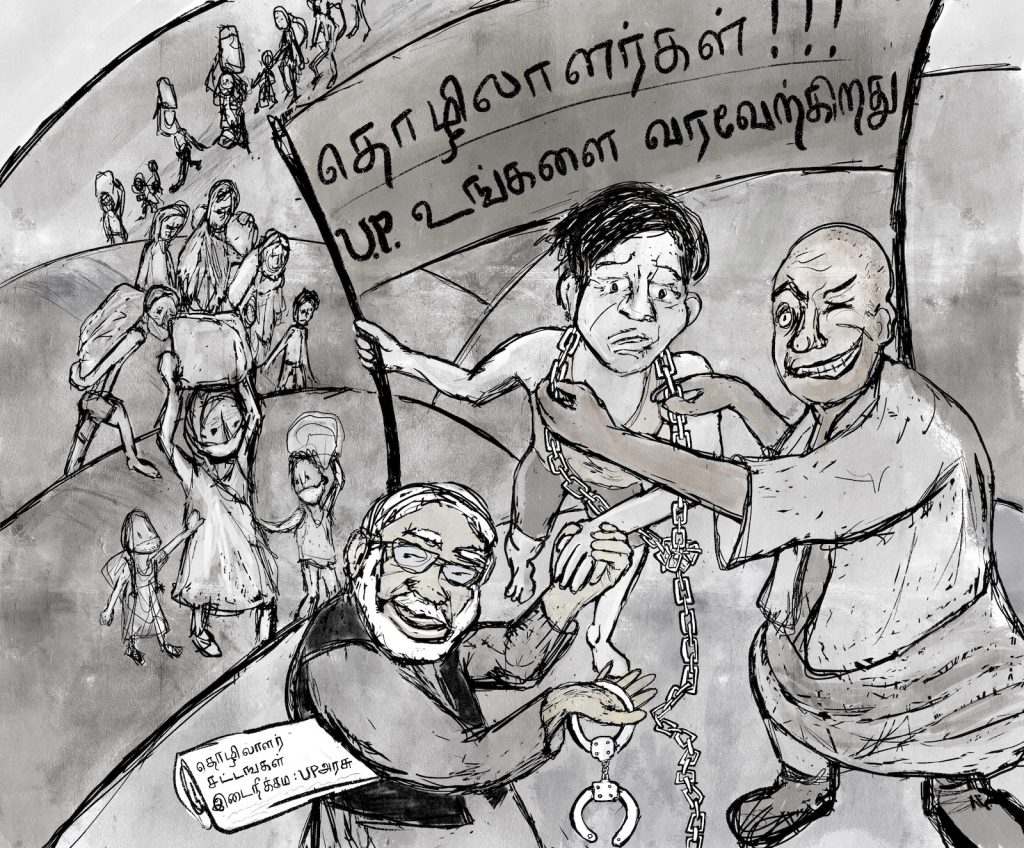 தொழிலாளர்கள் !!!
U.P. உங்களை வரவேற்கிறது
தொழிலாளர்
சட்டங்கள்
இடைநீக்கம் : UP அரசு